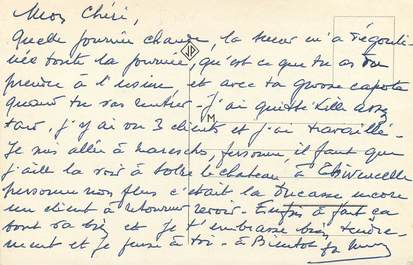 Mon Chéri,
Quelle journée chaude, la sueur m'a dégouli-
née toute la journée, qu'est ce que tu as du
prendre à l'usine, et avec ta grosse capote
quand tu vas rentrer - J'ai quitté Lille assez
tard, j'y ai vu 3 clients et j'ai travaillé -
Je suis allée à personne, il faut que
j'aille la voir à le chateau, à
personne non plus c'était la Ducasse encore
un client à retourner revoir - Enfin à part ça
tout va bien et je t'embrasse bien tendre-
ment et je pense à toi - à Bientot
JR
M